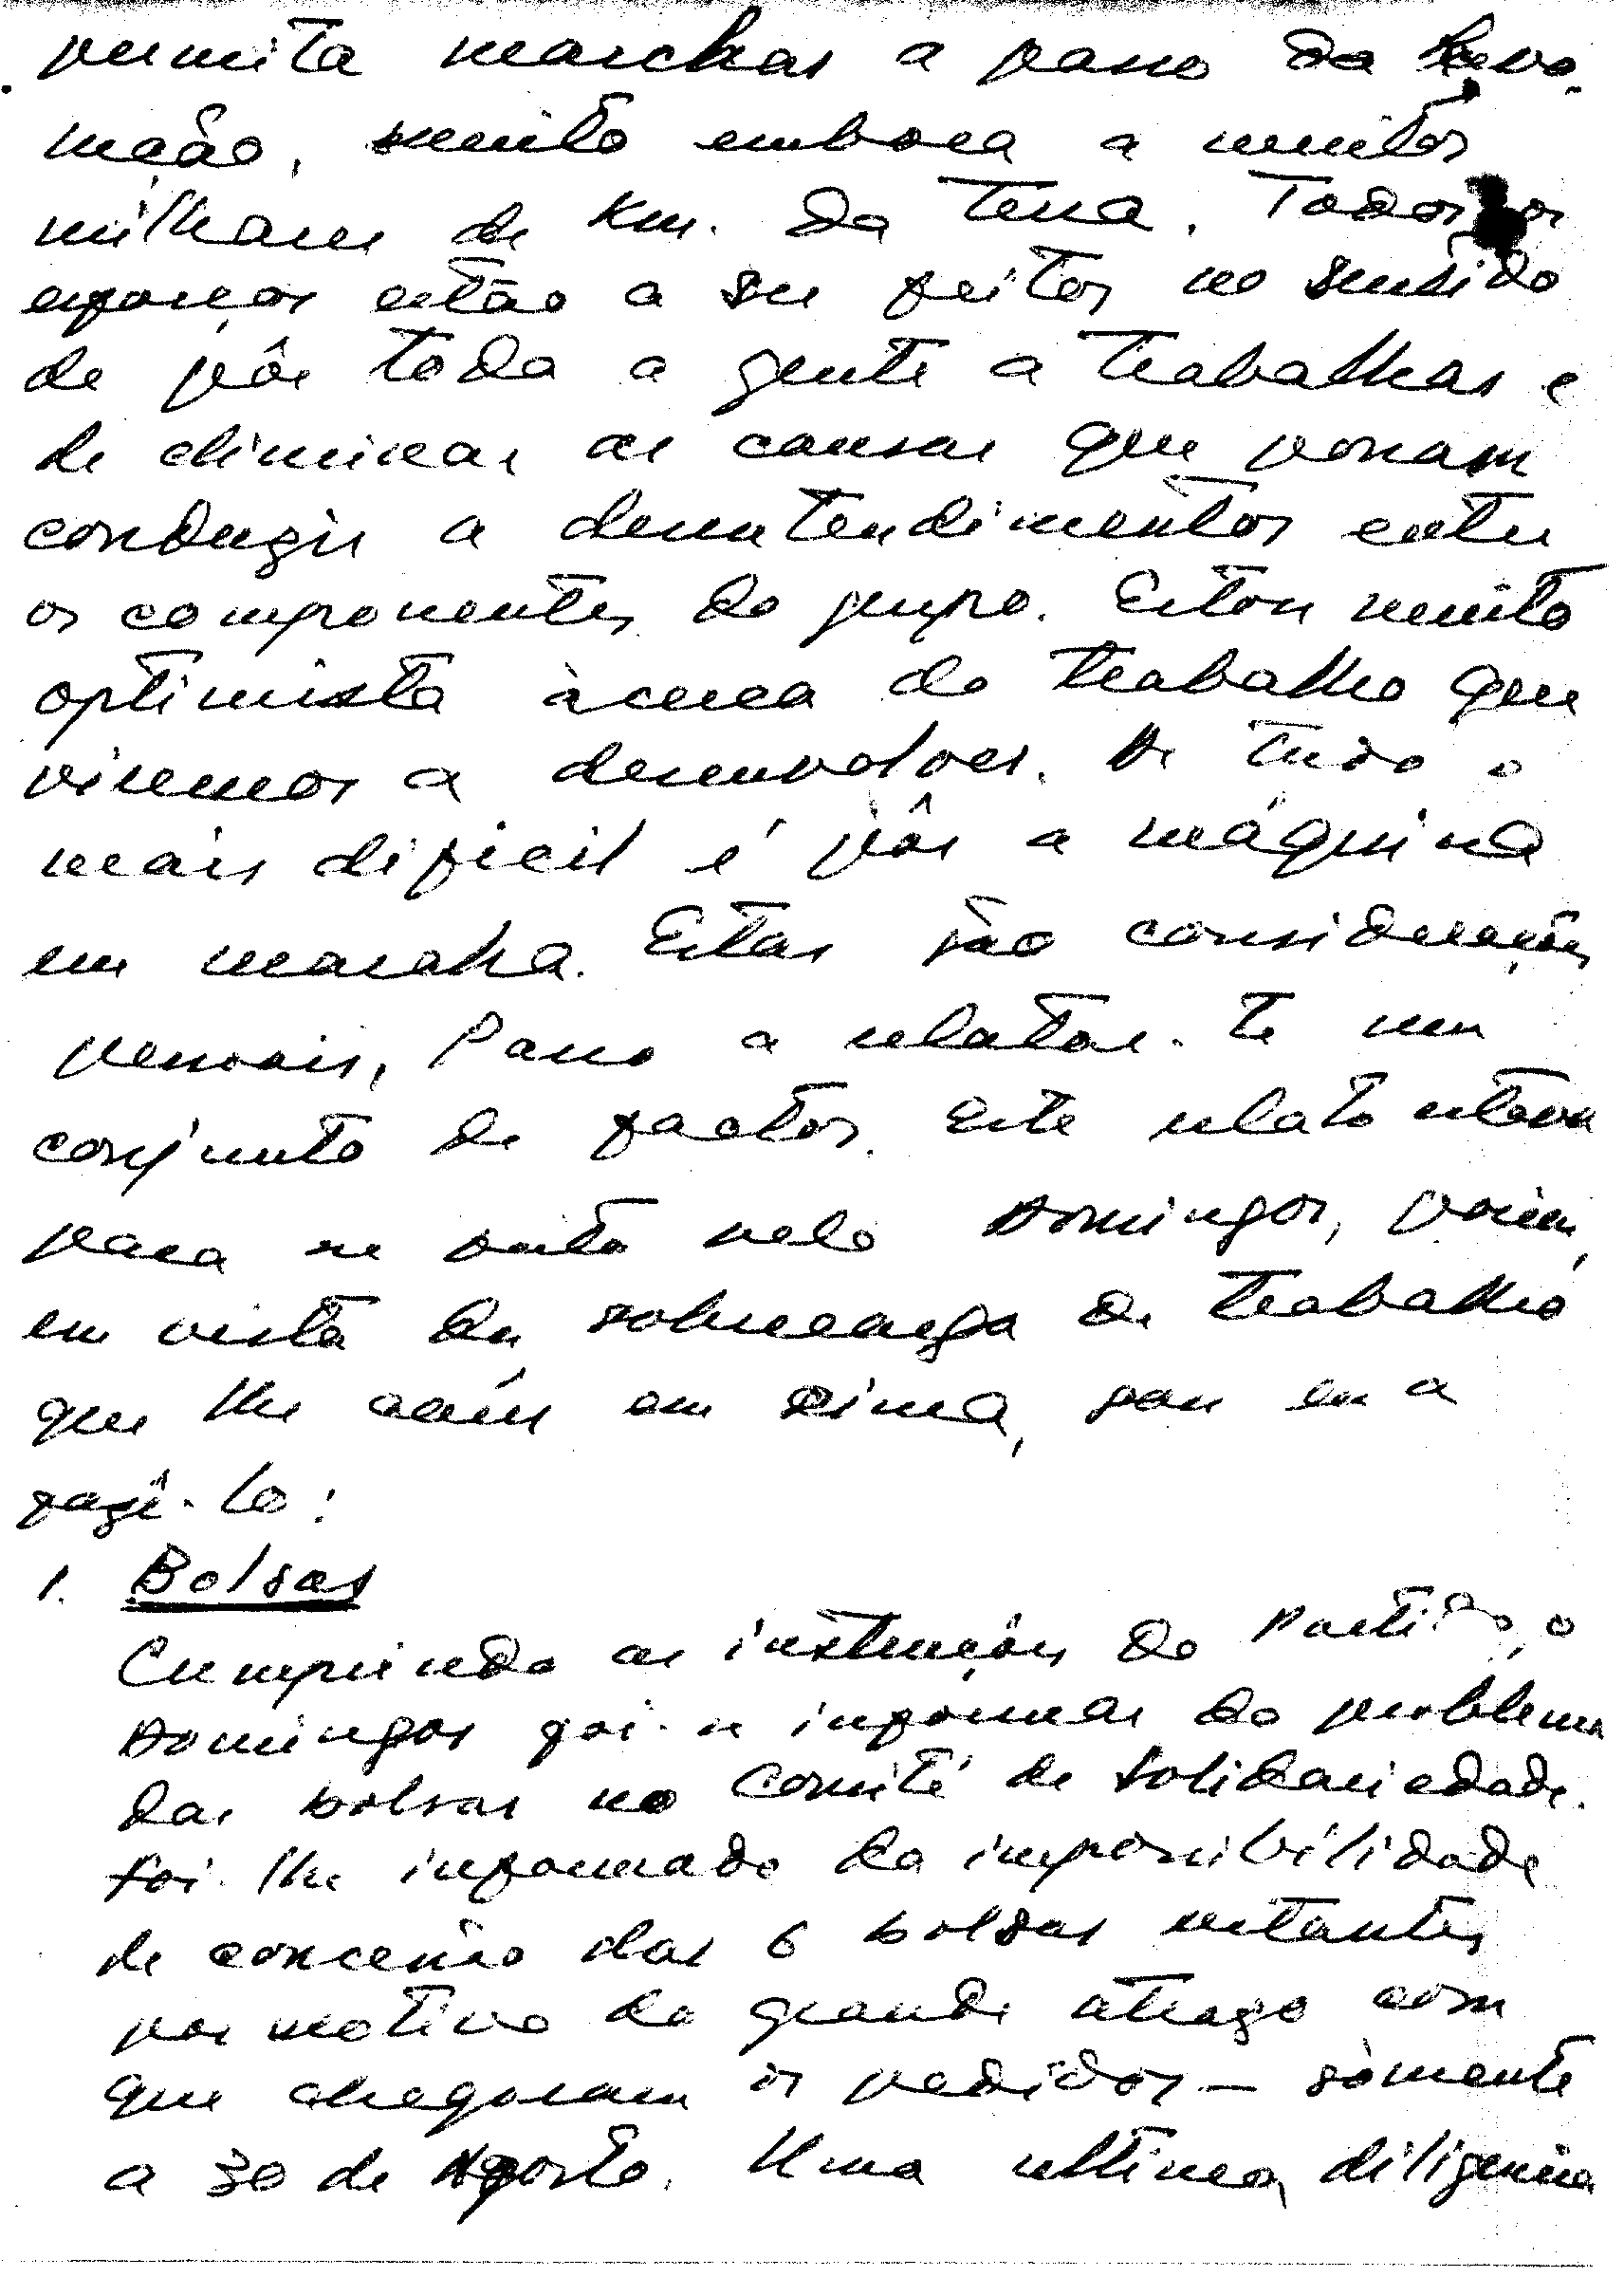 permita marchar a passo da Revo-
lução, muito embora a muitos
milhares de Km. da terra. Todos os
esforços estão a ser feitos no sentido
de pôr toda a gente a trabalhar e
de eliminar as causas que possam
conduzir a desentendimentos entre
os componentes do grupo. Estou muito
optimista àcerca do trabalho que
viremos a desenvolver. De tudo o
mais dificil é pôr a máquina
em marcha. Estas são considerações
pessoais, Passo a relatar-te um
conjunto de factos. Este relato estava
para ser feito pelo Domingos, porém,
em vista da sobrecarga de trabalho
que lhe caíu em cima, sou eu a
fazê-lo:
1. Bolsas
Cumprindo as instruções do Partido, o
Domingos foi-se informar do problema
das bolsas no Comité de Solidariedade.
Foi-lhe informado da impossibilidade
de concessão das 6 bolsas restantes
por motivo do grande atrazo com
que chegaram os pedidos — sòmente
a 30 de Agosto. Uma ultima diligencia